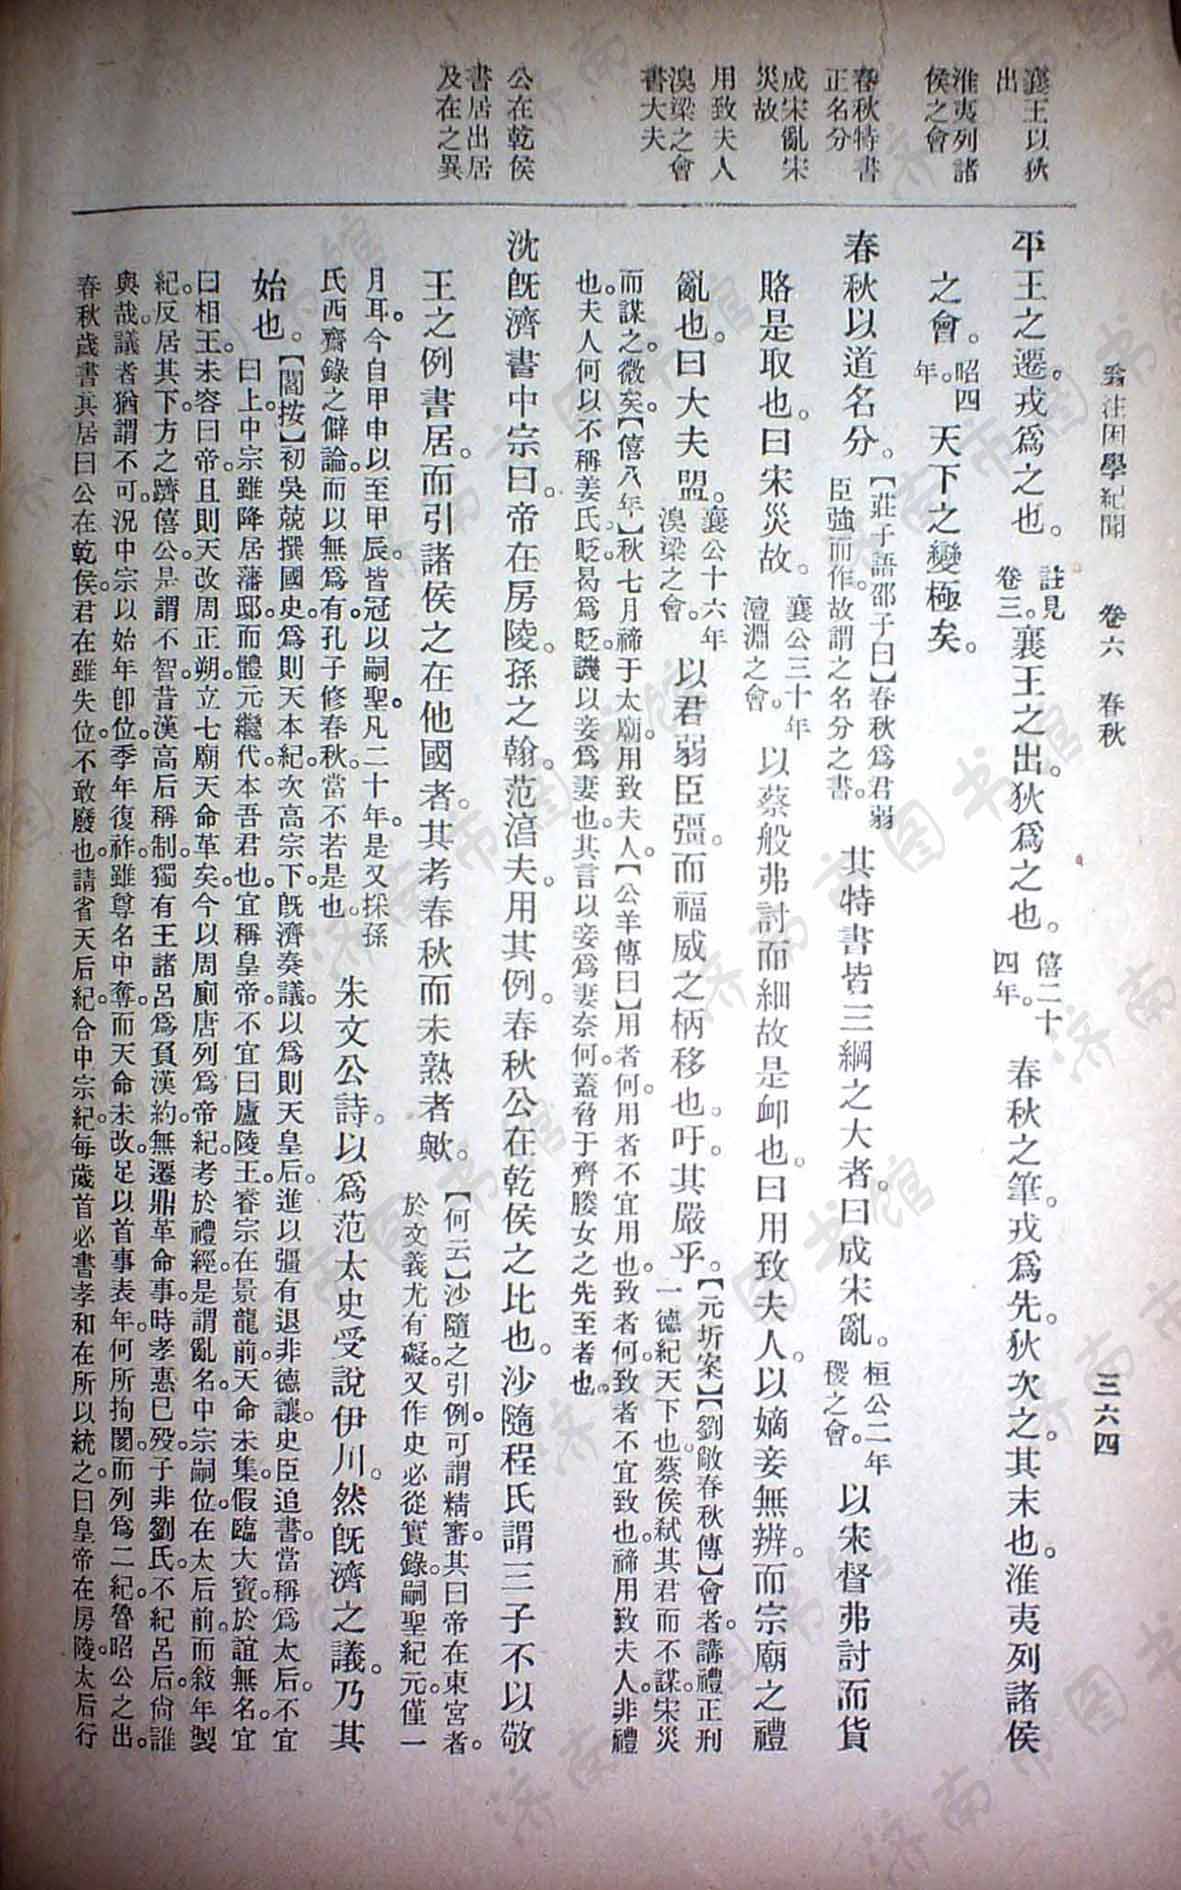 翁注困學紀聞　卷六　春秋　三六四
襄王以狄
出
淮夷列諸
侯之會
春秋特書
正名分
成宋亂宋
災故
用致夫人
溴梁之會
書大夫
公在乾侯
書居出居
及在之異
平王之遷。戎爲之也。註見
卷三。襄王之出。狄爲之也。僖二十
四年。春秋之筆。戎爲先。狄次之。其末也。淮夷列諸侯
之會。昭四
年。天下之變極矣。
春秋以道名分。【莊子語邵子曰】春秋爲君弱
臣強而作。故謂之名分之書。其特書皆三綱之大者。曰成宋亂。桓公二年
稷之會。以宋督弗討而貨
賂是取也。曰宋災故。襄公三十年
澶淵之會。以蔡般弗討而細故是卹也。曰用致夫人。以嫡妾無辨。而宗廟之禮
亂也。曰大夫盟。襄公十六年
溴梁之會。以君弱臣彊。而福威之柄移也。吁。其嚴乎。【元圻案】【劉敞春秋傳】會者。講禮正刑
一德紀天下也。蔡侯弒其君而不謀。宋災
而謀之。微矣。【僖八年】秋七月禘于太廟。用致夫人。【公羊傳曰】用者何。用者不宜用也。致者何。致者不宜致也。禘用致夫人。非禮
也。夫人何以不稱姜氏。貶。曷爲貶。譏以妾爲妻也。其言以妾爲妻奈何。蓋脅于齊媵女之先至者也。
沈旣濟書中宗曰。帝在房陵。孫之翰。范淳夫。用其例。春秋公在乾侯之比也。沙隨程氏謂三子不以敬
王之例書居。而引諸侯之在他國者。其考春秋而未熟者歟。【何云】沙隨之引例。可謂精審。其曰帝在東宮者。
於文義尤有礙。又作史必從實錄。嗣聖紀元。僅一
月耳。今自甲申以至甲辰。皆冠以嗣聖。凡二十年。是又採孫
氏西齋錄之僻論。而以無爲有。孔子修春秋。當不若是也。朱文公詩。以爲范太史受說伊川。然旣濟之議。乃其
始也。【閻按】初吳兢撰國史。爲則天本紀。次高宗下。旣濟奏議。以爲則天皇后。進以彊有。退非德讓。史臣追書。當稱爲太后。不宜
曰上。中宗雖降居藩邸。而體元繼代。本吾君也。宜稱皇帝。不宜曰廬陵王。睿宗在景龍前。天命未集。假臨大寶。於誼無名。宜
曰相王。未容曰帝。且則天改周正朔。立七廟。天命革矣。今以周廁唐列爲帝紀。考於禮經。是謂亂名。中宗嗣位在太后前。而敍年製
紀。反居其下。方之躋僖公。是謂不智。昔漢高后稱制。獨有王諸呂爲負漢約。無遷鼎革命事。時孝惠已歿。子非劉氏。不紀呂后。尙誰
與哉。議者猶謂不可。況中宗以始年卽位。季年復祚。雖尊名中奪。而天命未改。足以首事表年。何所拘閡。而列爲二紀。魯昭公之出。
春秋歲書其居曰。公在乾侯。君在雖失位。不敢廢也。請省天后紀。合中宗紀。每歲首必書孝和在所以統之。曰皇帝在房陵。太后行